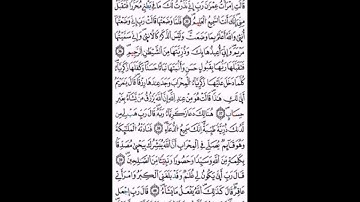 قَالَتِ ٱمْرَأَتُ عِمْرَٰنَ رَبِّ إِنِّى نَذَرْتُ لَكَ مَا فِى بَطْنِى مُحَرَّرًا فَتَقَبَّلْ
مِنِّىٓ إِنَّكَ أَنتَ ٱلسَّمِيعُ ٱلْعَلِيمُ ۝ فَلَمَّا وَضَعَتْهَا قَالَتْ رَبِّ إِنِّى وَضَعْتُهَآ
أُنثَىٰ وَٱللَّهُ أَعْلَمُ بِمَا وَضَعَتْ وَلَيْسَ ٱلذَّكَرُ كَٱلْأُنثَىٰ وَإِنِّى سَمَّيْتُهَا
مَرْيَمَ وَإِنِّىٓ أُعِيذُهَا بِكَ وَذُرِّيَّتَهَا مِنَ ٱلشَّيْطَٰنِ ٱلرَّجِيمِ ۝
فَتَقَبَّلَهَا رَبُّهَا بِقَبُولٍ حَسَنٍ وَأَنۢبَتَهَا نَبَاتًا حَسَنًا وَكَفَّلَهَا زَكَرِيَّا
كُلَّمَا دَخَلَ عَلَيْهَا زَكَرِيَّا ٱلْمِحْرَابَ وَجَدَ عِندَهَا رِزْقًا قَالَ يَٰمَرْيَمُ
أَنَّىٰ لَكِ هَٰذَا قَالَتْ هُوَ مِنْ عِندِ ٱللَّهِ إِنَّ ٱللَّهَ يَرْزُقُ مَن يَشَآءُ بِغَيْرِ
حِسَابٍ ۝ هُنَالِكَ دَعَا زَكَرِيَّا رَبَّهُۥ قَالَ رَبِّ هَبْ لِى مِن
لَّدُنكَ ذُرِّيَّةً طَيِّبَةً إِنَّكَ سَمِيعُ ٱلدُّعَآءِ ۝ فَنَادَتْهُ ٱلْمَلَٰٓئِكَةُ
وَهُوَ قَآئِمٌ يُصَلِّى فِى ٱلْمِحْرَابِ أَنَّ ٱللَّهَ يُبَشِّرُكَ بِيَحْيَىٰ مُصَدِّقًۢا
بِكَلِمَةٍ مِّنَ ٱللَّهِ وَسَيِّدًا وَحَصُورًا وَنَبِيًّا مِّنَ ٱلصَّٰلِحِينَ ۝
قَالَ رَبِّ أَنَّىٰ يَكُونُ لِى غُلَٰمٌ وَقَدْ بَلَغَنِىَ ٱلْكِبَرُ وَٱمْرَأَتِى
عَاقِرٌ قَالَ كَذَٰلِكَ ٱللَّهُ يَفْعَلُ مَا يَشَآءُ ۝ قَالَ رَبِّ ٱجْعَل